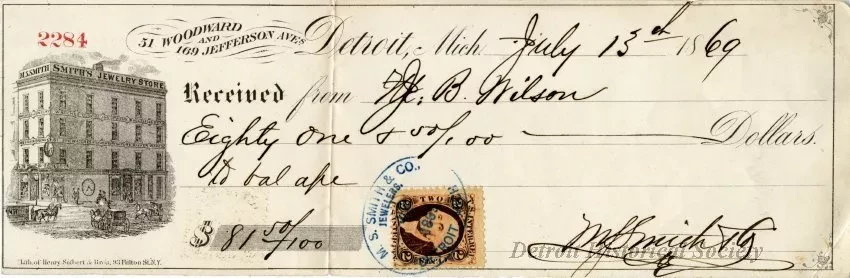 2284
51 WOODWARD
AND
169 JEFFERSON AVES
Detroit, Mich. July 13th 1869
M.S.SMITH SMITH'S JEWELRY STORE
Received from H. B. Wilson
Eighty One & 50/100 Dollars.
to bal a/c
$ 81 50/100
M. S. SMITH & CO.
JEWELERS.
DETROIT
TWO
M S Smith & Co
Detroit Historical Society
Lith. of Henry Seibert & Bros. 93 Fulton St. N.Y.